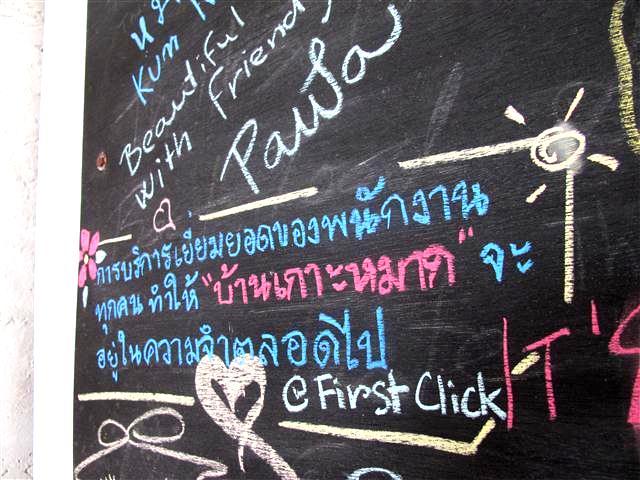 Kum
Beautiful
with friends
Pawa
การบริการเยี่ยมยอดของพนักงาน
ทุกคน ทำให้ "บ้านเกาะหมาด" จะ
อยู่ในความจำตลอดไป
@ First Click
IT'S